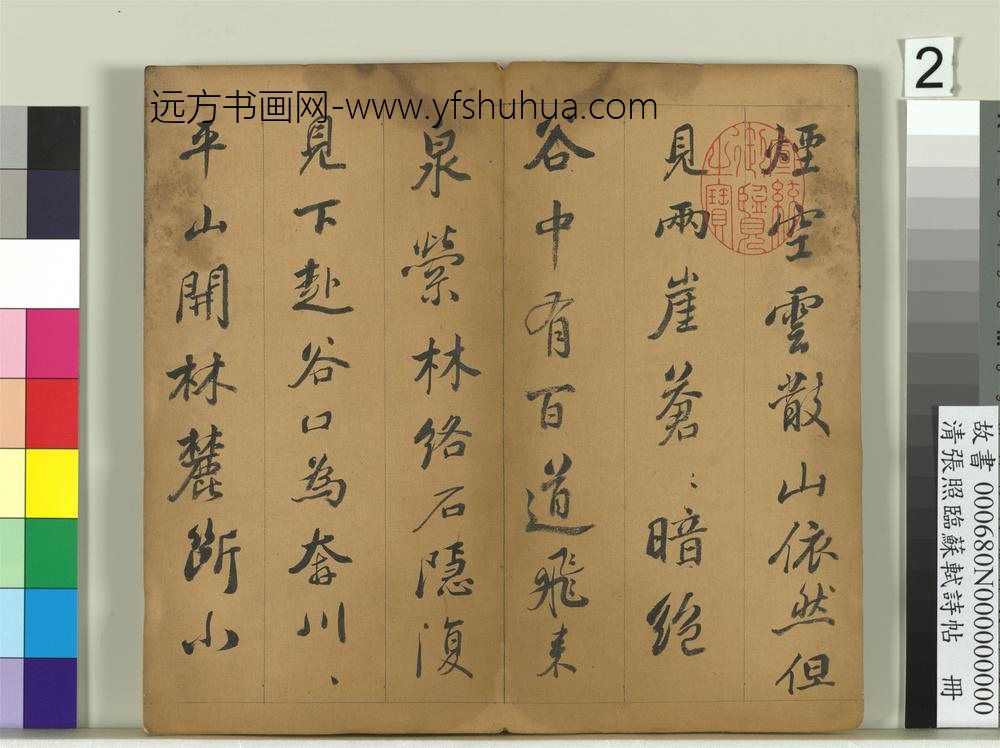 远方书画网-www.yfshuhua.com
2
煙空雲散山依然但
見兩崖蒼〻暗絶
谷中有百道飛来
泉縈林絡石隱復
見下赴谷口為奔川〻
平山開林麓斷小
宣統御覽之寶
故書 000680N000000000
清張照臨蘇軾詩帖 冊